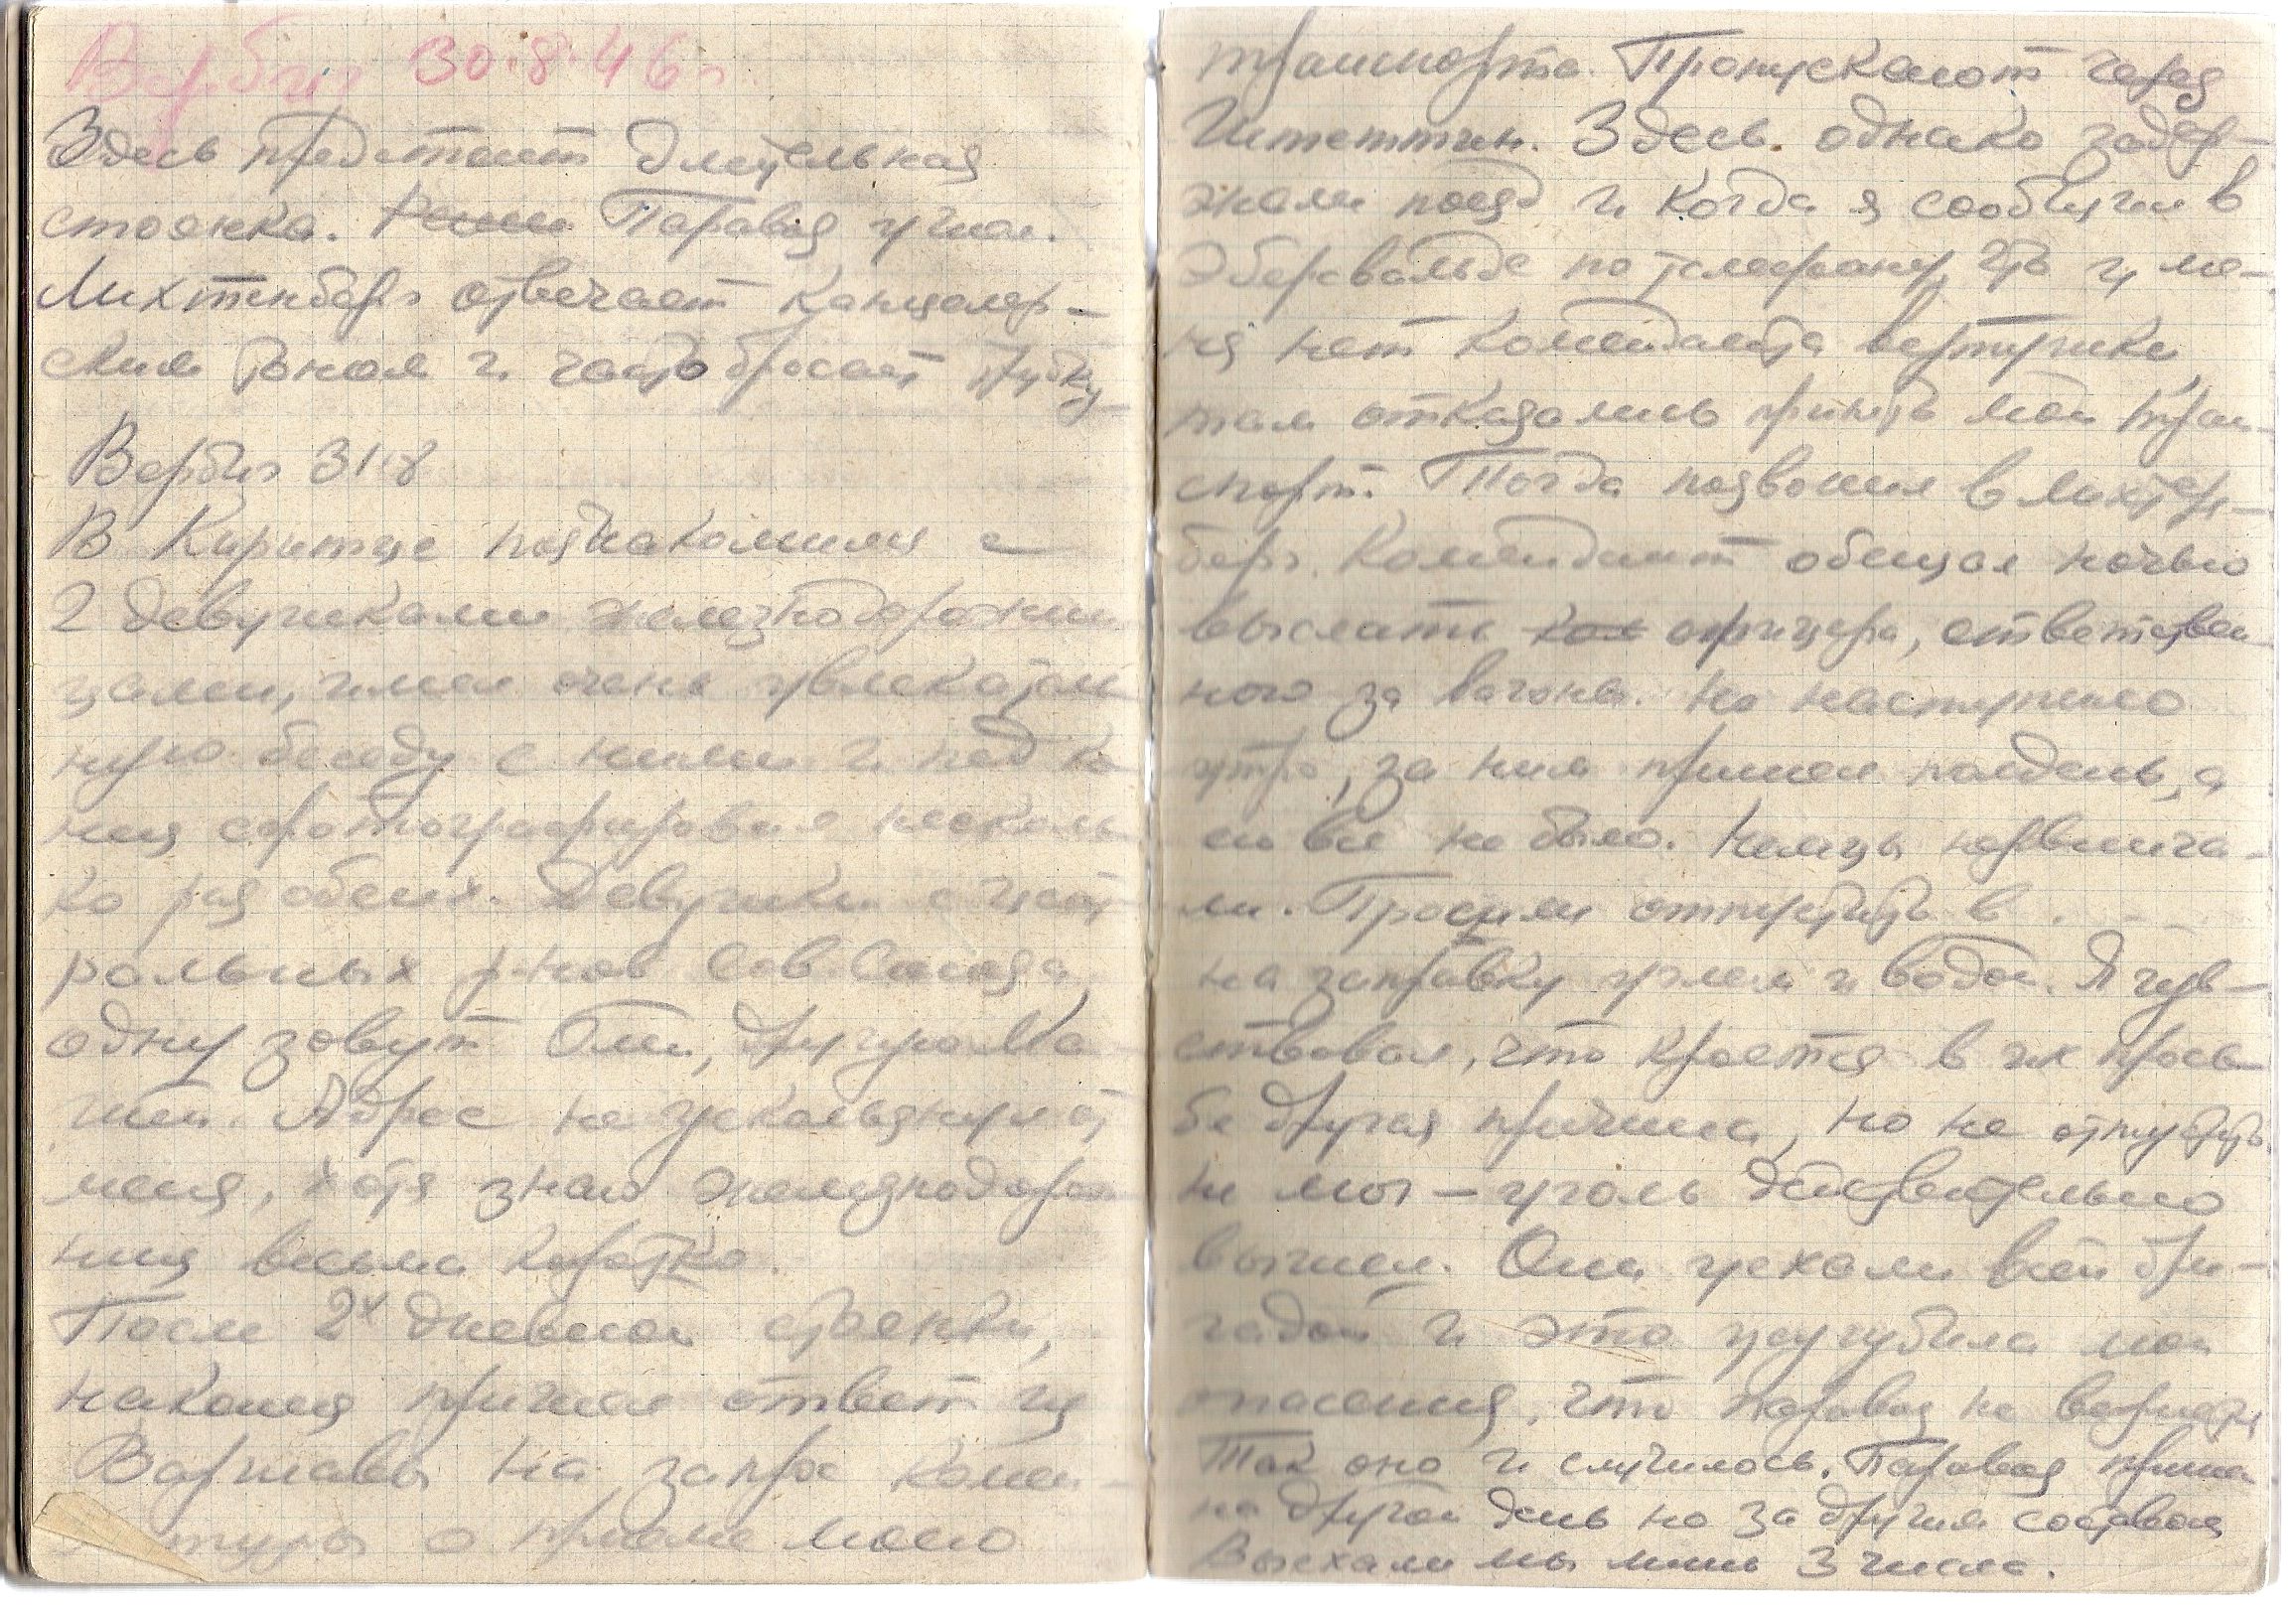 Вербиг 30.8.46г.
Здесь предстоит длительная
стоянка. Паровоз ушел.
Лихтенберг отвечает канцеляр-
ским тоном и часто бросает трубку
Вербиг 31.8
В Киритце познакомился с
2 девушками железнодорожни
цами, имел очень увлекатель
ную беседу с ними и под ко
нец сфотографировал несколь
ко раз обеих. Девушки с цент
ральных р-нов Сов Союза,
одну зовут Оля, другую Ма
шей. Адрес не ускользнул от
меня, хотя знаю железнодорож
ниц весьма коротко.
После 2х дневной стоянки,
наконец пришел ответ из
Варшавы на запрос комен-
туры о приеме моего
транспорта. Пропускают через
Штеттин. Здесь однако задер-
жали поезд и когда я сообщил в
Эберсвальде по телефону, что у ме-
ня нет коменданта вертушки,
там отказались принять мой тран-
спорт. Тогда позвонил в Лихтен-
берг. Комендант обещал ночью
выслать офицера, ответствен
ного за вагоны. Но наступило
утро, за ним пришел полдень, а
его все не было. Немцы нервнича-
ли. Просили отпустить в
на заправку углем и водой. Я чув-
ствовал, что кроется в их прось-
бе другая причина, но не отпустить
не мог - уголь действительно
вышел. Они уехали всей бри-
гадой и это усугубило мои
опасения, что паровоз не вернется
Так оно и случилось. Паровоз пришел
на другой день но за другим составом
Выехали мы лишь 3 числа.